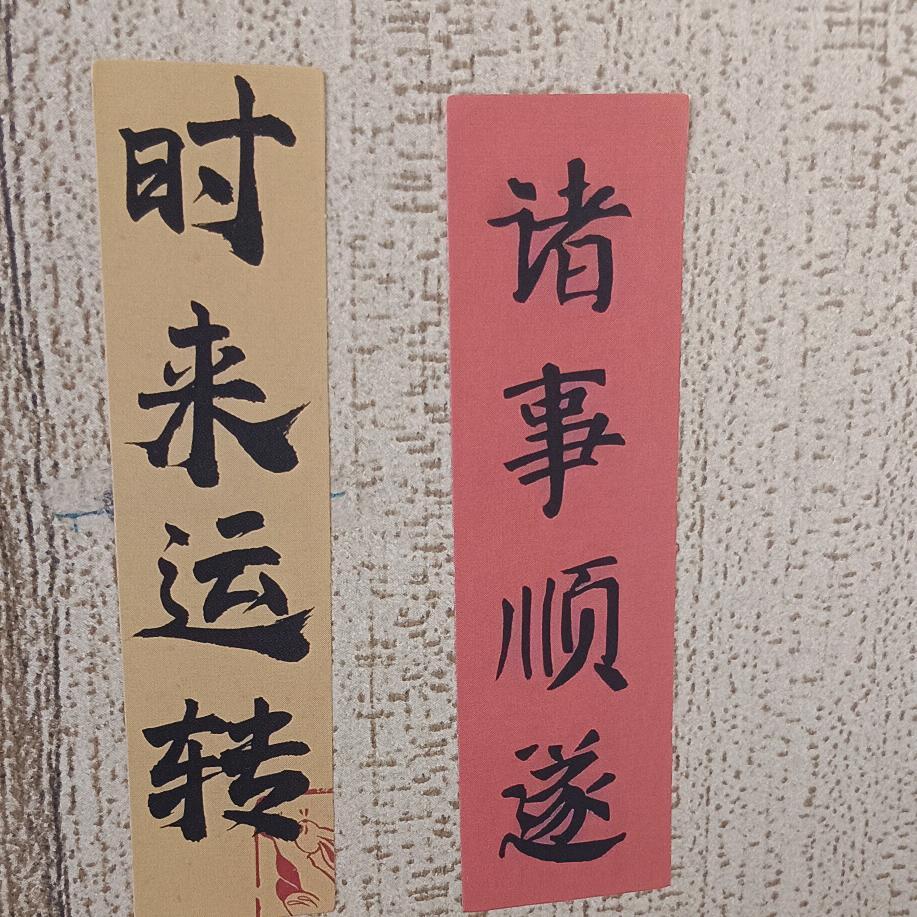 时来运转
诸事顺遂